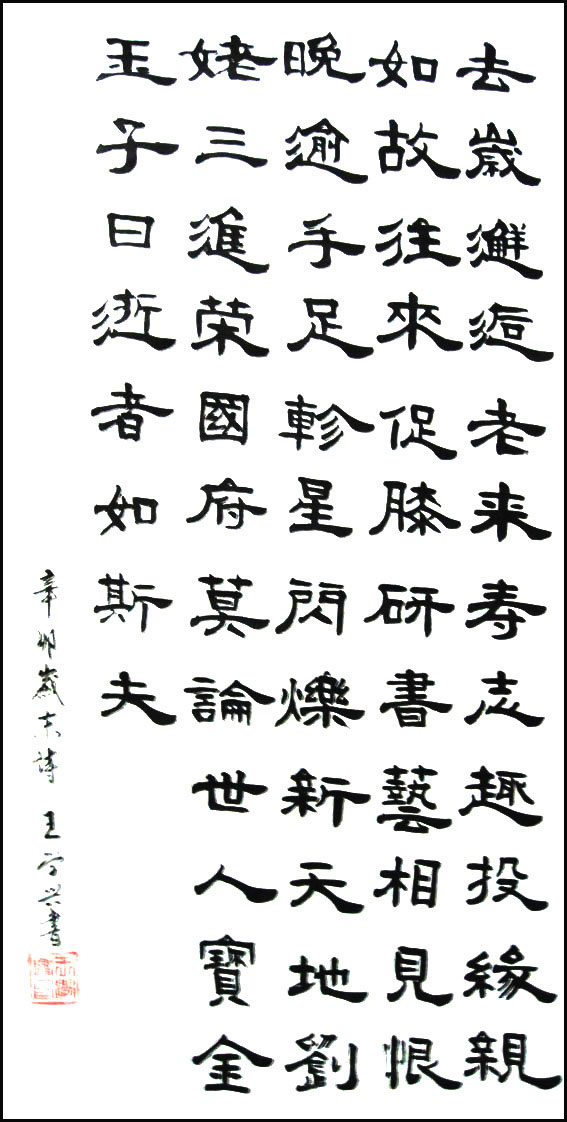 去歲邂逅老来寿志趣投緣親
如故往來促膝研書藝相見恨
晚逾手足軫星閃爍新天地劉
姥三進荣國府莫論世人寶金
玉子曰逝者如斯夫
辛卯歲末詩 王学兴書